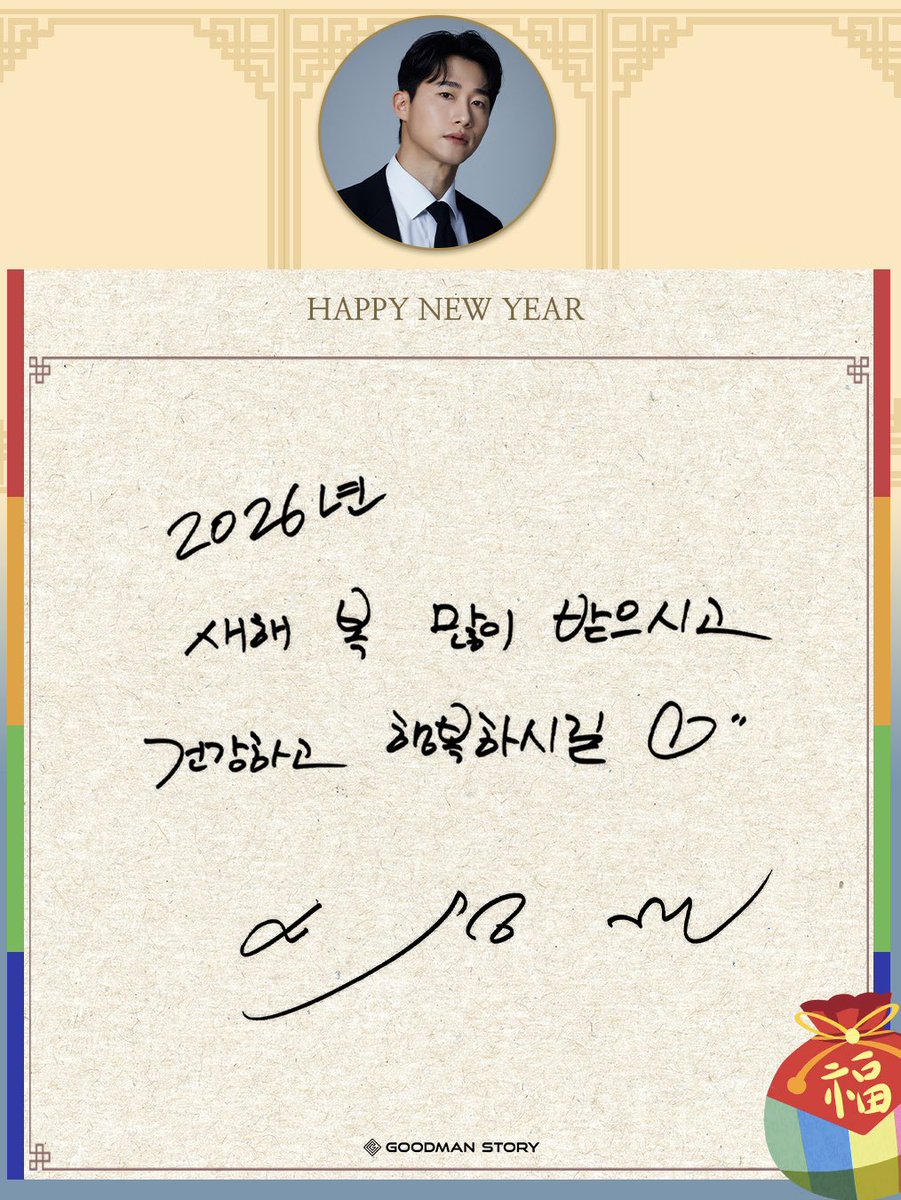 HAPPY NEW YEAR
2026년
새해 복 많이 받으시고
건강하고 행복하시길
GOODMAN STORY
福